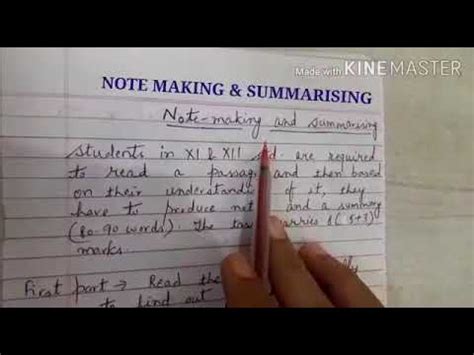 Made with KINEMASTER
NOTE MAKING & SUMMARISING
Note-making and summarising
Students in XI & XII std. are required
to read a passage and then based
on their understanding of it, they
have to produce and a summary
(80-90 words). The carries 8(5+3)
marks.
First part → Read the
to find out